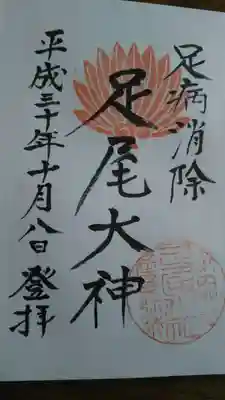 足病消除
足尾大神
平成三十年十月八日登拝